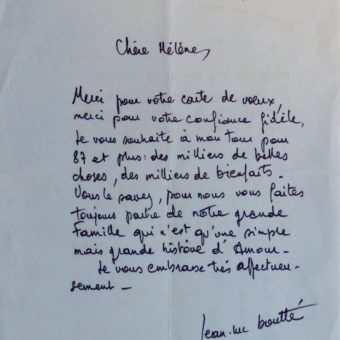 Chère Hélène,
Merci pour votre carte de vœux,
merci pour votre confiance fidèle,
Je vous souhaite à mon tour pour
87 et plus : des milliers de belles
choses, des milliers de bienfaits.
Vous le savez, pour nous vous faites
toujours partie de notre grande
Famille qui n'est qu'une simple
mais grande histoire d'Amour –
Je vous embrasse très affectueu-
sement –
Jean-Luc Boutté